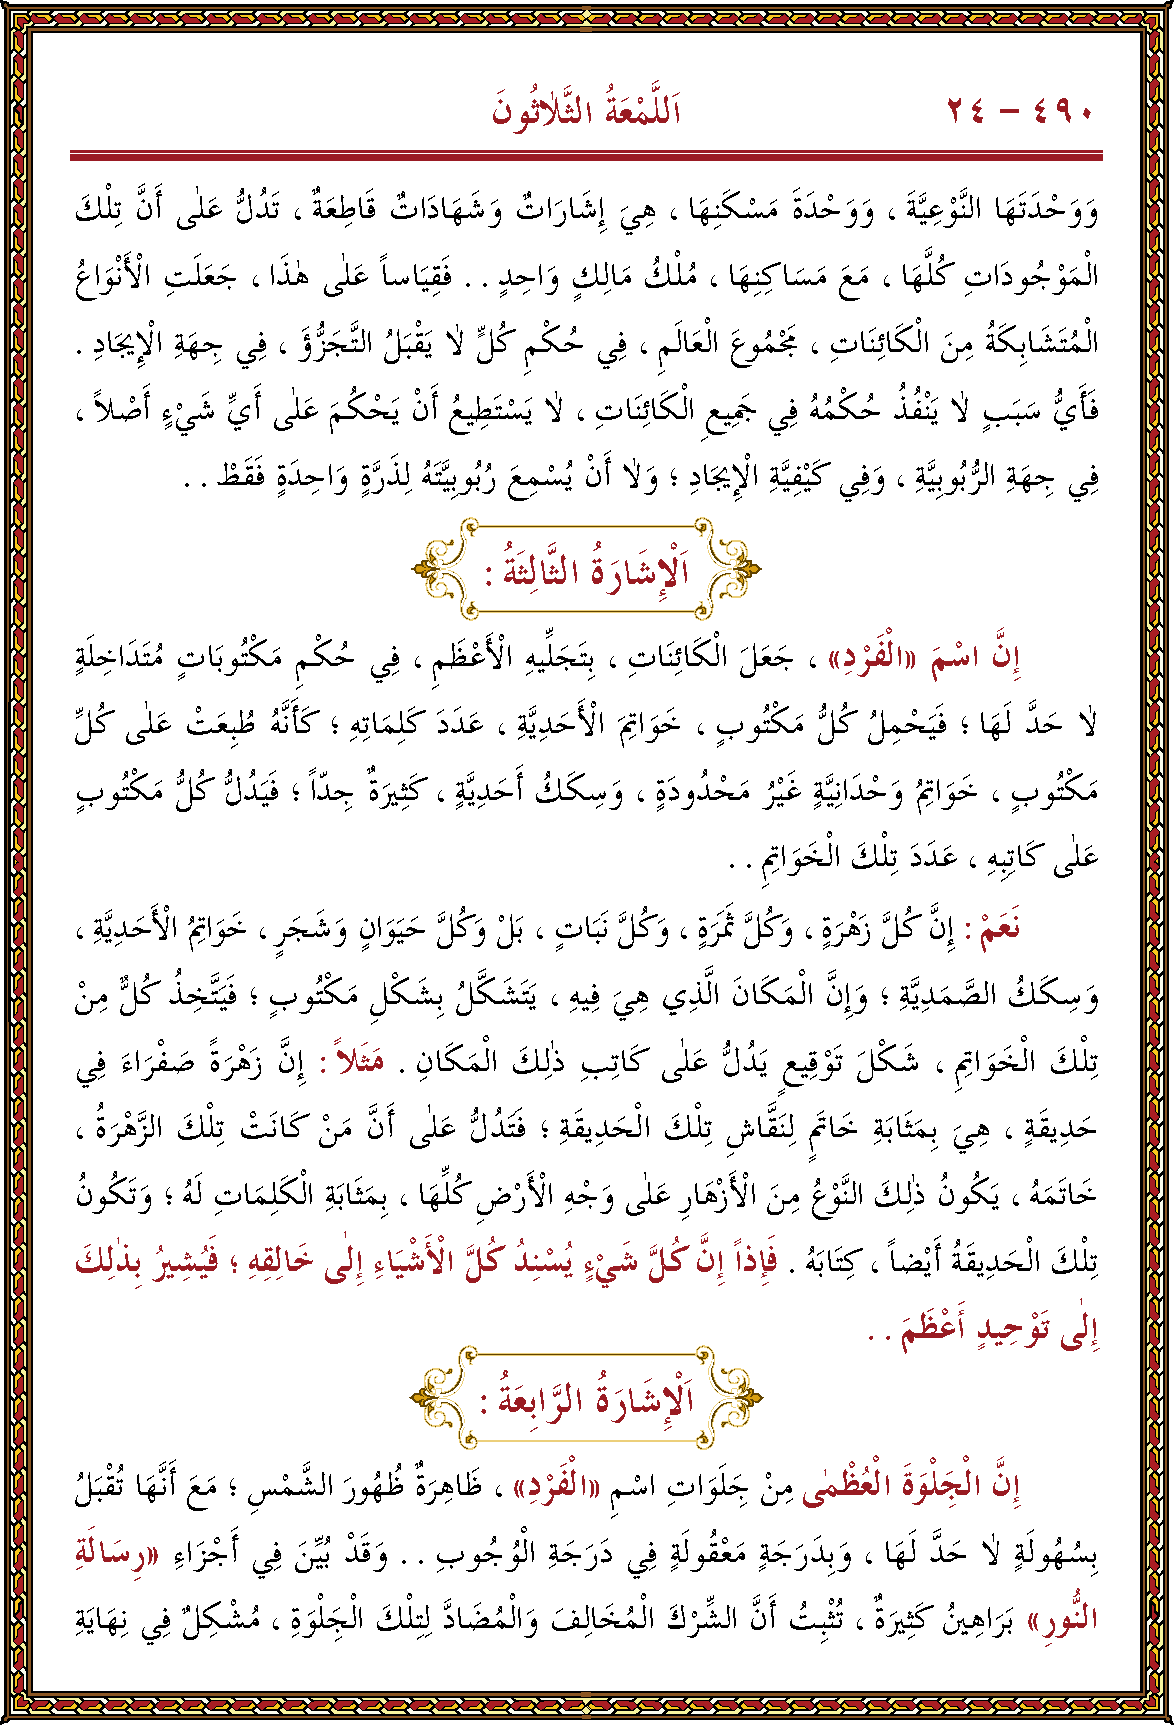 ٤٩٠ – ٢٤
اَللَّمْعَةُ الثَّلَاثُونَ
وَوَحْدَتَهَا النَّوْعِيَّةَ ، وَوَحْدَةَ مَسْكَنِهَا ، هِيَ إِشَارَاتٌ وَشَهَادَاتٌ قَاطِعَةٌ ، تَدُلُّ عَلٰى أَنَّ تِلْكَ
الْمَوْجُودَاتِ كُلَّهَا ، مَعَ مَسَاكِنِهَا ، مُلْكُ مَالِكٍ وَاحِدٍ . . فَقِيَاساً عَلٰى هٰذَا ، جَعَلَتِ الْأَنْوَاعُ
الْمُتَشَابِكَةُ مِنَ الْكَائِنَاتِ ، مَجْمُوعَ الْعَالَمِ ، فِي حُكْمِ كُلٍّ لَا يَقْبَلُ التَّجَزُّؤَ ، فِي جِهَةِ الْإِيجَادِ .
فَأَيُّ سَبَبٍ لَا يَنْفُذُ حُكْمُهُ فِي جَمِيعِ الْكَائِنَاتِ ، لَا يَسْتَطِيعُ أَنْ يَحْكُمَ عَلٰى أَيِّ شَيْءٍ أَصْلاً ،
فِي جِهَةِ الرُّبُوبِيَّةِ ، وَفِي كَيْفِيَّةِ الْإِيجَادِ ؛ وَلَا أَنْ يُسْمِعَ رُبُوبِيَّتَهُ لِذَرَّةٍ وَاحِدَةٍ فَقَطْ . .
اَلْإِشَارَةُ الثَّالِثَةُ :
إِنَّ اسْمَ «الْفَرْدِ» ، جَعَلَ الْكَائِنَاتِ ، بِتَجَلِّيهِ الْأَعْظَمِ ، فِي حُكْمِ مَكْتُوبَاتٍ مُتَدَاخِلَةٍ
لَا حَدَّ لَهَا ؛ فَيَحْمِلُ كُلُّ مَكْتُوبٍ ، خَوَاتِمَ الْأَحَدِيَّةِ ، عَدَدَ كَلِمَاتِهِ ؛ كَأَنَّهُ طُبِعَتْ عَلٰى كُلِّ
مَكْتُوبٍ ، خَوَاتِمُ وَحْدَانِيَّةٍ غَيْرُ مَحْدُودَةٍ ، وَسِكَكُ أَحَدِيَّةٍ ، كَثِيرَةٌ جِدّاً ؛ فَيَدُلُّ كُلُّ مَكْتُوبٍ
عَلٰى كَاتِبِهِ ، عَدَدَ تِلْكَ الْخَوَاتِمِ . .
نَعَمْ : إِنَّ كُلَّ زَهْرَةٍ ، وَكُلَّ ثَمَرَةٍ ، وَكُلَّ نَبَاتٍ ، بَلْ وَكُلَّ حَيَوَانٍ وَشَجَرٍ ، خَوَاتِمُ الْأَحَدِيَّةِ ،
وَسِكَكُ الصَّمَدِيَّةِ ؛ وَإِنَّ الْمَكَانَ الَّذِي هِيَ فِيهِ ، يَتَشَكَّلُ بِشَكْلِ مَكْتُوبٍ ؛ فَيَتَّخِذُ كُلٌّ مِنْ
تِلْكَ الْخَوَاتِمِ ، شَكْلَ تَوْقِيعٍ يَدُلُّ عَلٰى كَاتِبِ ذٰلِكَ الْمَكَانِ . مَثَلاً : إِنَّ زَهْرَةً صَفْرَاءَ فِي
حَدِيقَةٍ ، هِيَ بِمَثَابَةِ خَاتَمٍ لِنَقَّاشِ تِلْكَ الْحَدِيقَةِ ؛ فَتَدُلُّ عَلٰى أَنَّ مَنْ كَانَتْ تِلْكَ الزَّهْرَةُ ،
خَاتَمَهُ ، يَكُونُ ذٰلِكَ النَّوْعُ مِنَ الْأَزْهَارِ عَلٰى وَجْهِ الْأَرْضِ كُلِّهَا ، بِمَثَابَةِ الْكَلِمَاتِ لَهُ ؛ وَتَكُونُ
تِلْكَ الْحَدِيقَةُ أَيْضاً ، كِتَابَهُ . فَإِذاً إِنَّ كُلَّ شَيْءٍ يُسْنِدُ كُلَّ الْأَشْيَاءِ إِلٰى خَالِقِهِ ؛ فَيُشِيرُ بِذٰلِكَ
إِلٰى تَوْحِيدٍ أَعْظَمَ . .
اَلْإِشَارَةُ الرَّابِعَةُ :
إِنَّ الْجِلْوَةَ الْعُظْمٰى مِنْ جَلَوَاتِ اسْمِ «الْفَرْدِ» ، ظَاهِرَةٌ ظُهُورَ الشَّمْسِ ؛ مَعَ أَنَّهَا تُقْبَلُ
بِسُهُولَةٍ لَا حَدَّ لَهَا ، وَبِدَرَجَةٍ مَعْقُولَةٍ فِي دَرَجَةِ الْوُجُوبِ . . وَقَدْ بُيِّنَ فِي أَجْزَاءِ «رِسَالَةِ
النُّورِ» بَرَاهِينُ كَثِيرَةٌ ، تُثْبِتُ أَنَّ الشِّرْكَ الْمُخَالِفَ وَالْمُضَادَّ لِتِلْكَ الْجِلْوَةِ ، مُشْكِلٌ فِي نِهَايَةِ